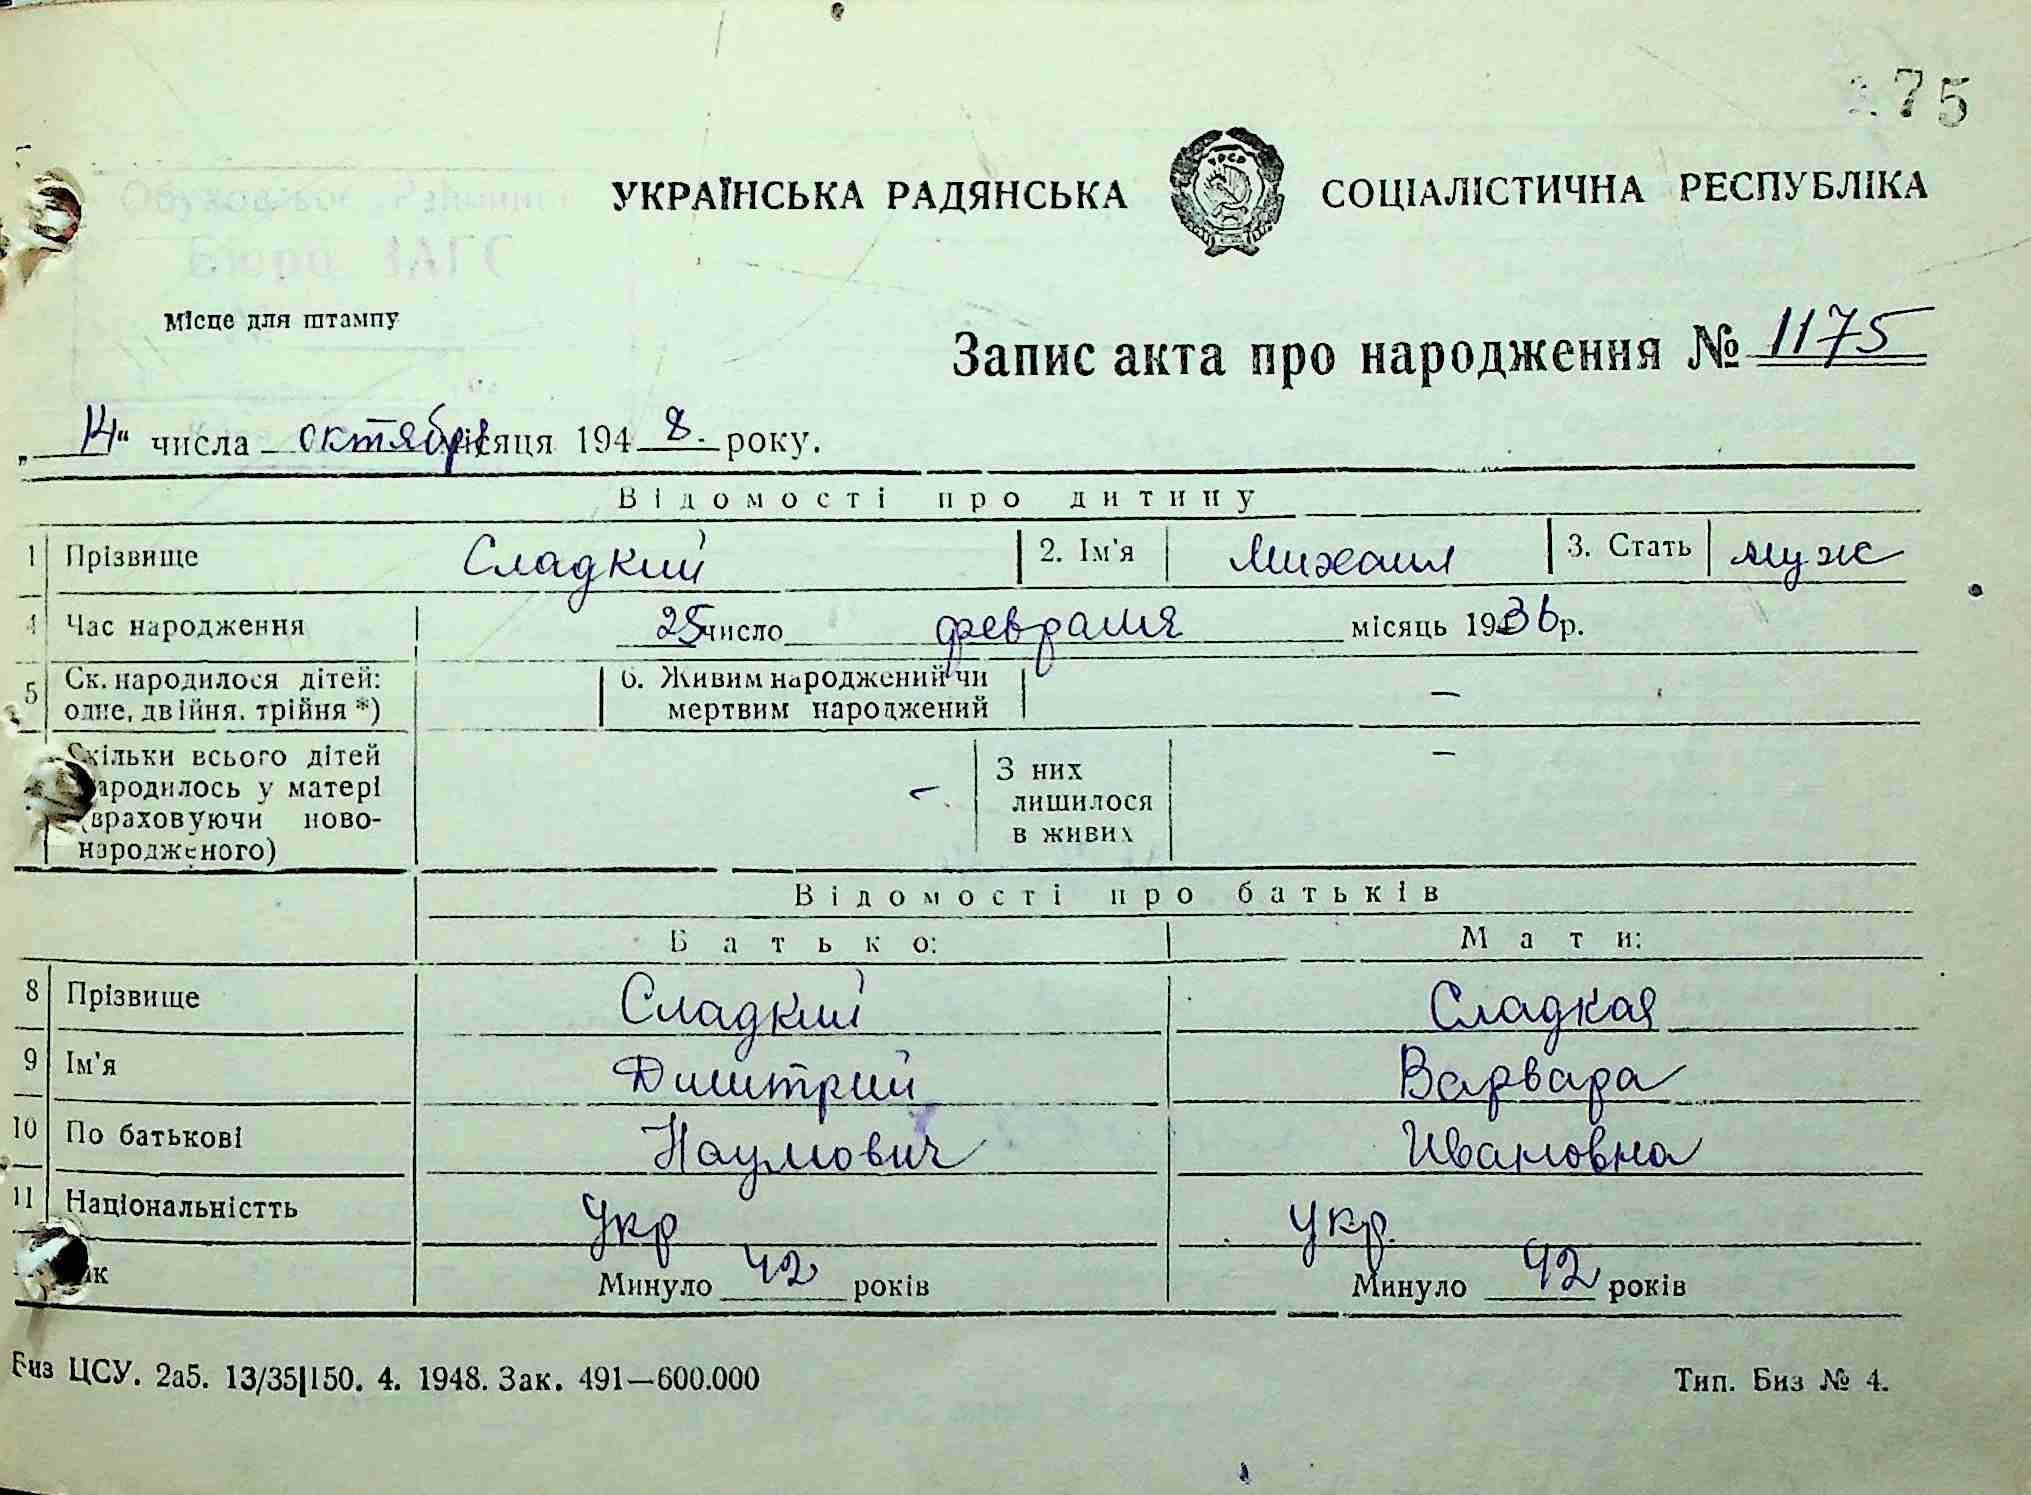 175
Обуховское Районное
Бюро ЗАГС
УКРАЇНСЬКА РАДЯНСЬКА СОЦІАЛІСТИЧНА РЕСПУБЛІКА
УРСР
Місце для штампу
Запис акта про народження № 1175
„14“ числа октября місяця 1948. року.
Відомості про дитину
1 Прізвище Сладкий 2. Ім'я Михаил 3. Стать муж
4 Час народження 25 число февраля місяць 1936 р.
5 Ск. народилося дітей: 6. Живим народжений чи —
одне, двійня, трійня *) мертвим народжений
Скільки всього дітей — З них —
народилось у матері лишилося
(враховуючи ново- в живих
народженого)
Відомості про батьків
Батько: Мати:
8 Прізвище Сладкий Сладкая
9 Ім'я Дмитрий Варвара
10 По батькові Наумович Ивановна
11 Національністть Укр Укр.
Вік Минуло 42 років Минуло 42 років
Биз ЦСУ. 2а5. 13/35|150. 4. 1948. Зак. 491—600.000 Тип. Биз № 4.